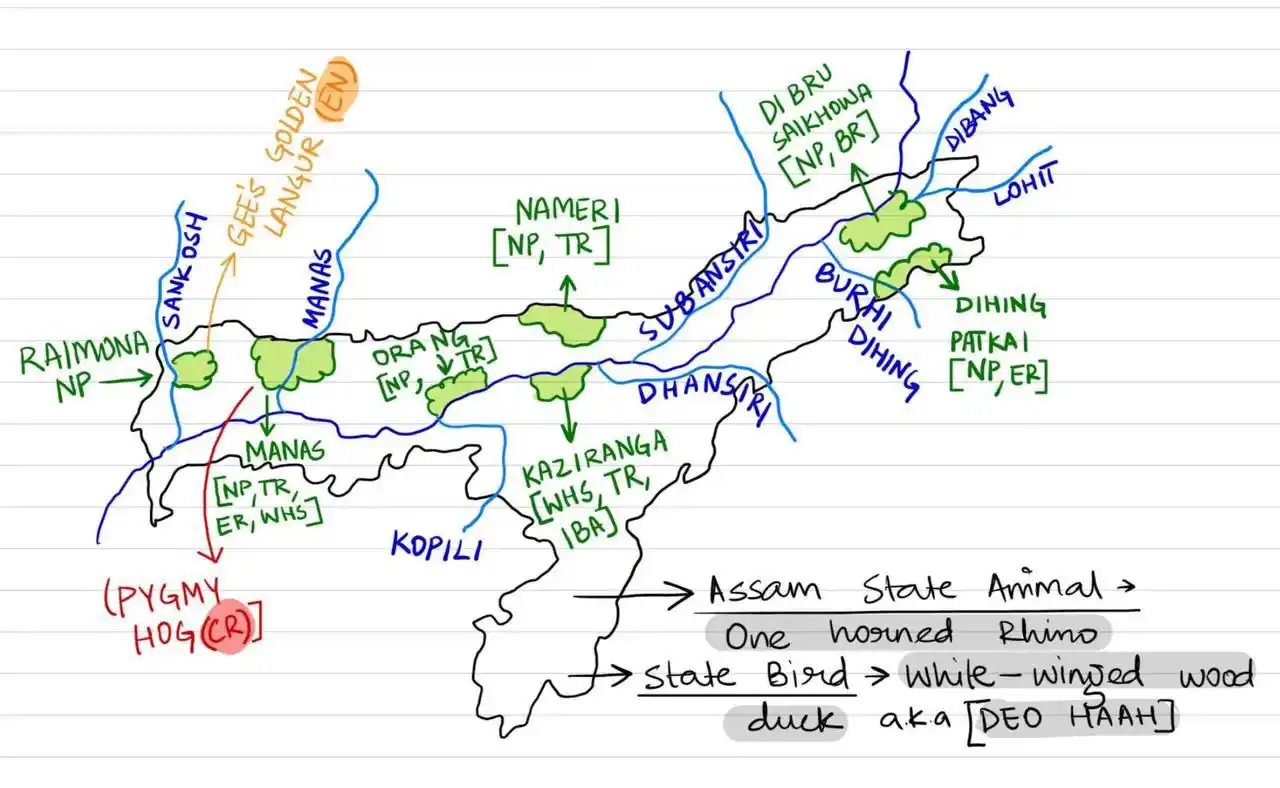 GEE'S GOLDEN
LANGUR (EN)
SANKOSH
MANAS
RAIMONA
NP
MANAS
[NP, TR,
ER, WHS]
(PYGMY
HOG (CR)]
NAMERI
[NP, TR]
ORANG
[NP, TR]
KOPILI
KAZIRANGA
[WHS, TR,
IBA]
SUBANSIRI
DHANSIRI
DIBRU
SAIKHOWA
[NP, BR]
DIBANG
LOHIT
BURHI
DIHING
DIHING
PATKAI
[NP, ER]
Assam State Animal →
One horned Rhino
State Bird → White-winged wood
duck a.k.a [DEO HAAH]